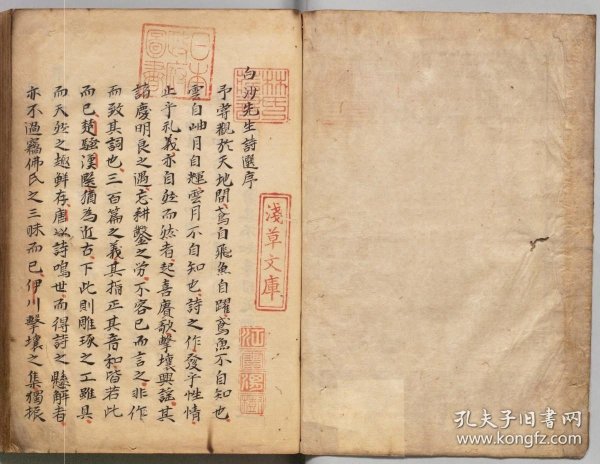 白沙先生詩選序
予嘗觀於天地間鳶自飛魚自躍鳶魚不自知也
雲自岫月自輝雲月不自知也詩之作發乎性情
止乎礼義亦自然而然者起喜賡歌擊壤興謡其
諧慶明良之遇忘耕鑿之劳不容已而言之非作
而致其詞也三百篇之義其指正其音和皆若此
而已楚騷漢魏猶為近古下此則雕琢之工雖具
而天然之趣鮮存唐以詩鳴世而得詩之懸解者
亦不過竊佛氏之三昧而已伊川擊壤之集獨振
日本
政府
圖書
淺草文庫
孔夫子旧书网
www.kongfz.com